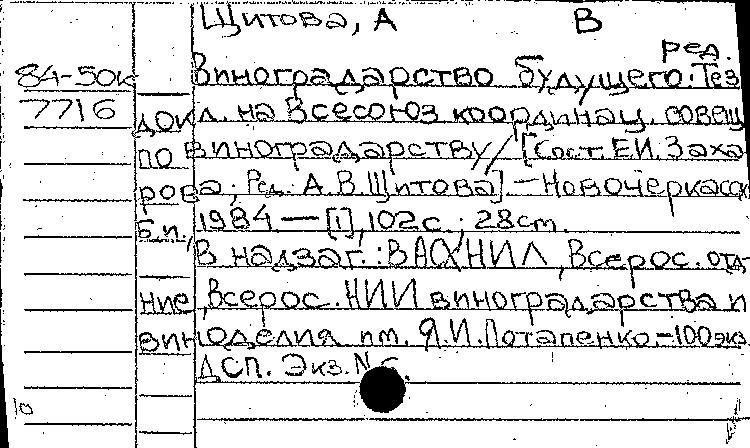 Щитова, А В
ред.
84-50к Виноградарство будущего: Тез
7716 докл. на Всесоюз координац. совещ
по виноградарству/[Сост. Е.И. Заха
рова; Ред. А.В. Щитова].—Новочеркасск
Б.и., 1984—[1], 102с.; 28см.
В надзаг.: ВАСХНИЛ, Всерос. отд-
ние, Всерос. НИИ виноградарства и
виноделия им. Я.И. Потапенко.—100экз
ДСП. Экз. №
10